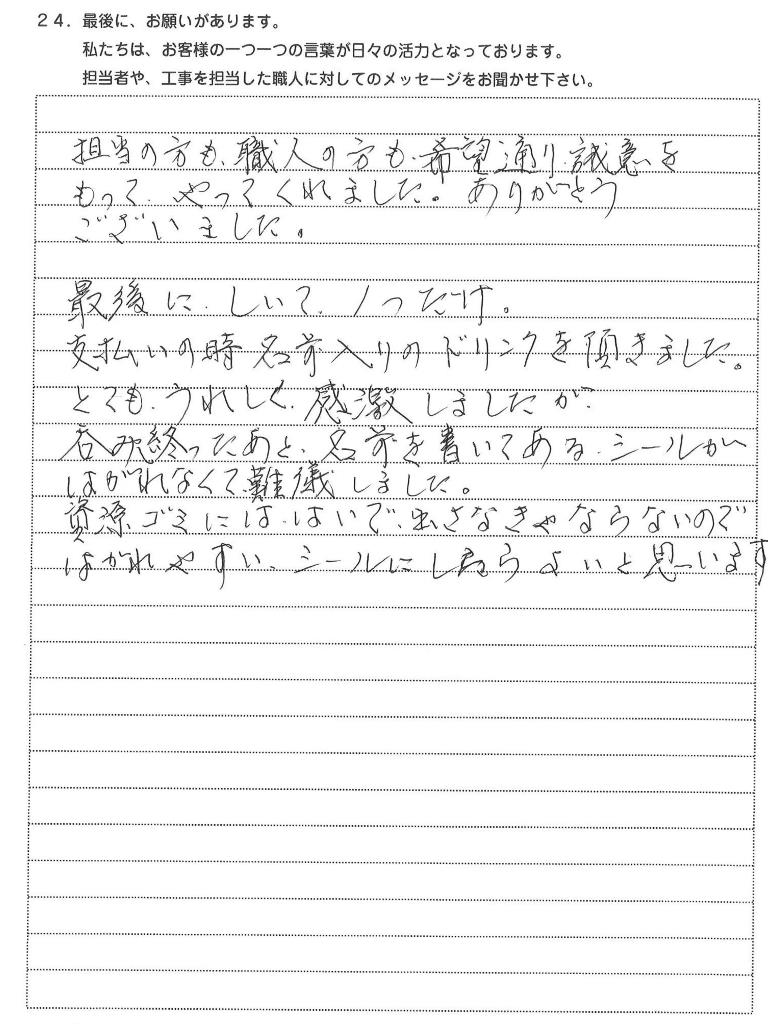 24. 最後に、お願いがあります。
私たちは、お客様の一つ一つの言葉が日々の活力となっております。
担当者や、工事を担当した職人に対してのメッセージをお聞かせ下さい。
担当の方も、職人の方も、希望通り、誠意を
もって、やってくれました。ありがとう
ございました。
最後に、しいて、1つだけ。
支払いの時名前入りのドリンクを頂きました。
とても、うれしく、感激しましたが、
呑み終ったあと、名前を書いてある、シールが
はがれなくて難儀しました。
資源ゴミには、はいで、出さなきゃならないので
はがれやすい、シールにしたらよいと思います